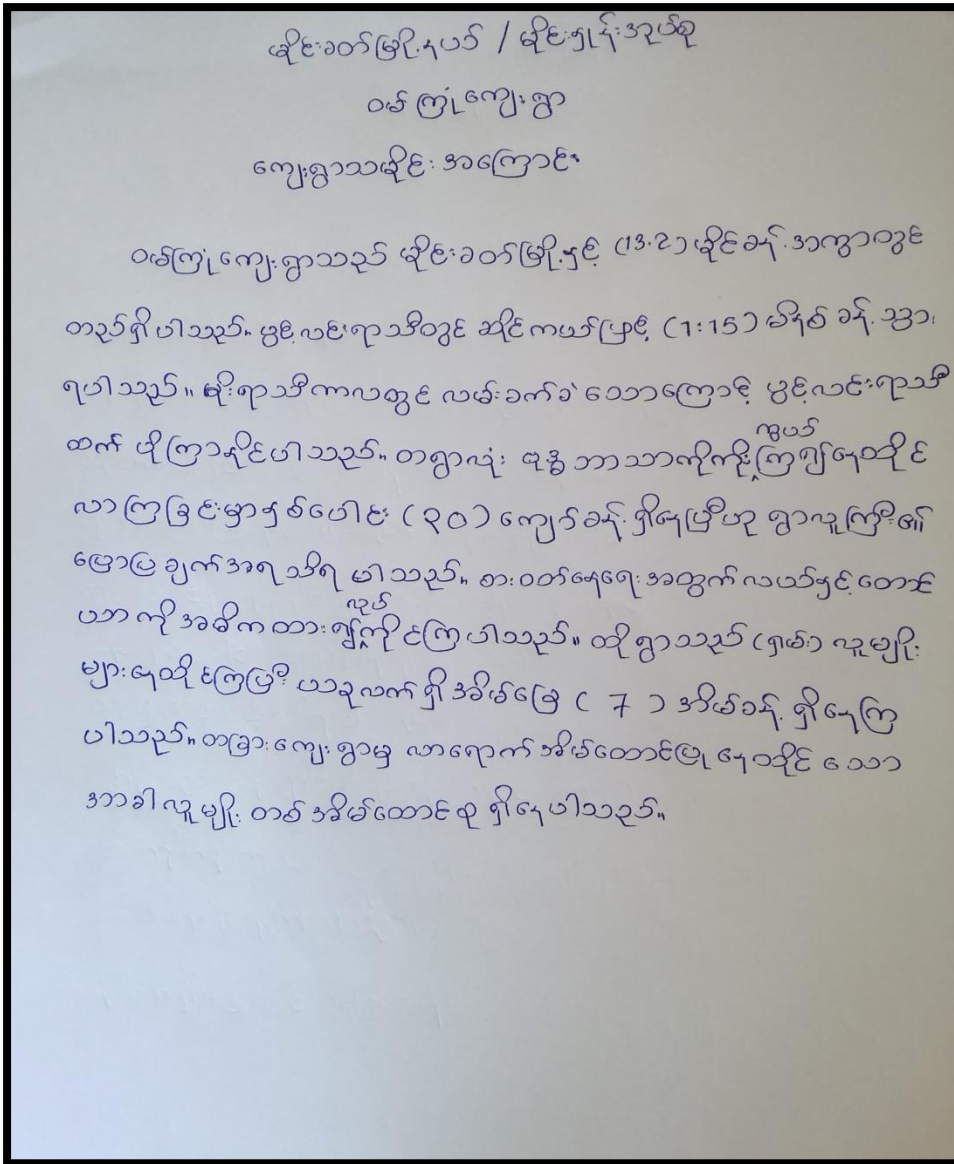 မိုင်းခတ်မြို့နယ် / မိုင်းရှုန်းအုပ်စု
ဝမ်ကြုံကျေးရွာ
ကျေးရွာသမိုင်းအကြောင်း
ဝမ်ကြုံကျေးရွာသည် မိုင်းခတ်မြို့နှင့် (13.2) မိုင်ခန့်အကွာတွင်
တည်ရှိပါသည်။ ပွင့်လင်းရာသီတွင် ဆိုင်ကယ်ဖြင့် (1:15) မိနစ်ခန့်သွား
ရပါသည်။ မိုးရာသီကာလတွင် လမ်းခက်ခဲသောကြောင့် ပွင့်လင်းရာသီ
ထက် ပိုကြာနိုင်ပါသည်။ တရွာလုံး ဗုဒ္ဓဘာသာကိုကိုးကွယ်ကြ၍နေထိုင်
လာကြခြင်းမှာနှစ်ပေါင်း (၃၀) ကျော်ခန့်ရှိနေပြီဟု ရွာလူကြီး၏
ပြောပြချက်အရသိရပါသည်။ စားဝတ်နေရေးအတွက်လယ်နှင့်တောင်
ယာကိုအဓိကထား၍လုပ်ကိုင်ကြပါသည်။ ထိုရွာသည် (ရှမ်း) လူမျိုး
များနေထိုင်ကြပြီး ယခုလက်ရှိအိမ်ခြေ ( 7 ) အိမ်ခန့်ရှိနေကြ
ပါသည်။ တခြားကျေးရွာမှ လာရောက်အိမ်ထောင်ပြုနေထိုင်သော
အာခါလူမျိုး တစ်အိမ်ထောင်စု ရှိနေပါသည်။